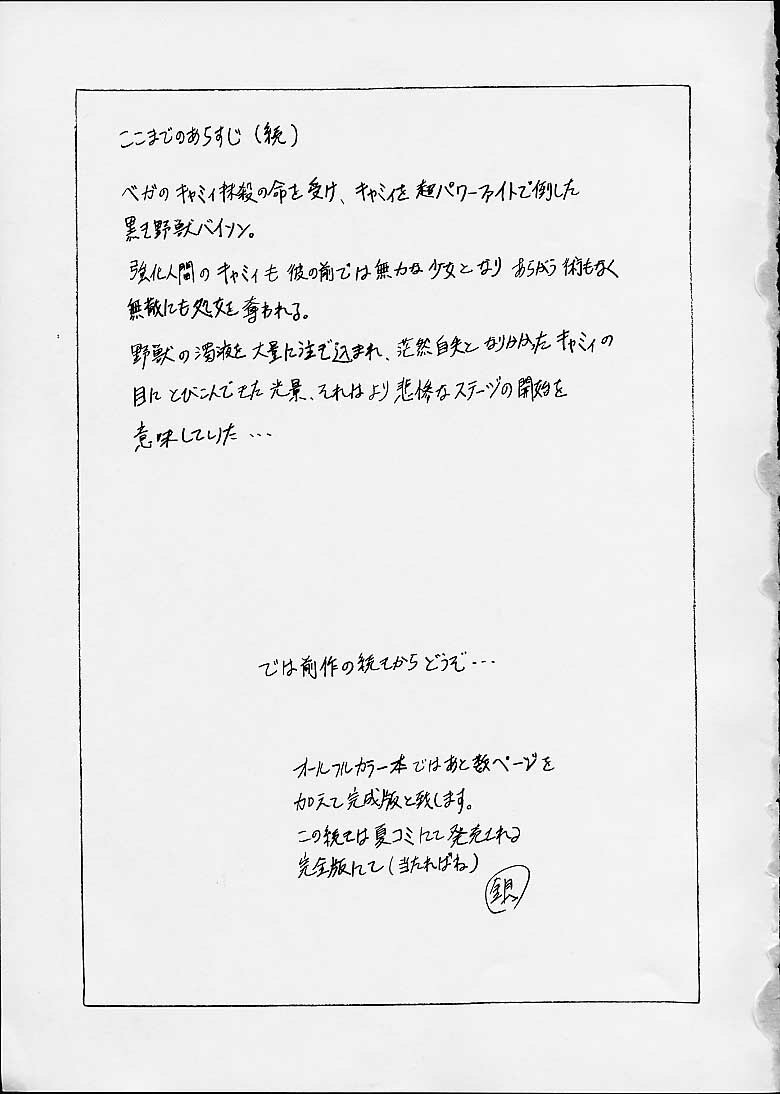 ここまでのあらすじ（続）
ベガのキャミィ抹殺の命を受け、キャミィを超パワーファイトで倒した
黒き野獣バイソン。
強化人間のキャミィも彼の前では無力な少女となりあらがう術もなく
無惨にも処女を奪われる。
野獣の濁液を大量に注ぎ込まれ、茫然自失となりかかったキャミィの
目にとびこんできた光景、それはより悲惨なステージの開始を
意味していた・・・
では前作の続きからどうぞ・・・
オールフルカラー本ではあと数ページを
加えて完成版と致します。
この続きは夏コミにて発売される
完全版にて（当たればね）
銀